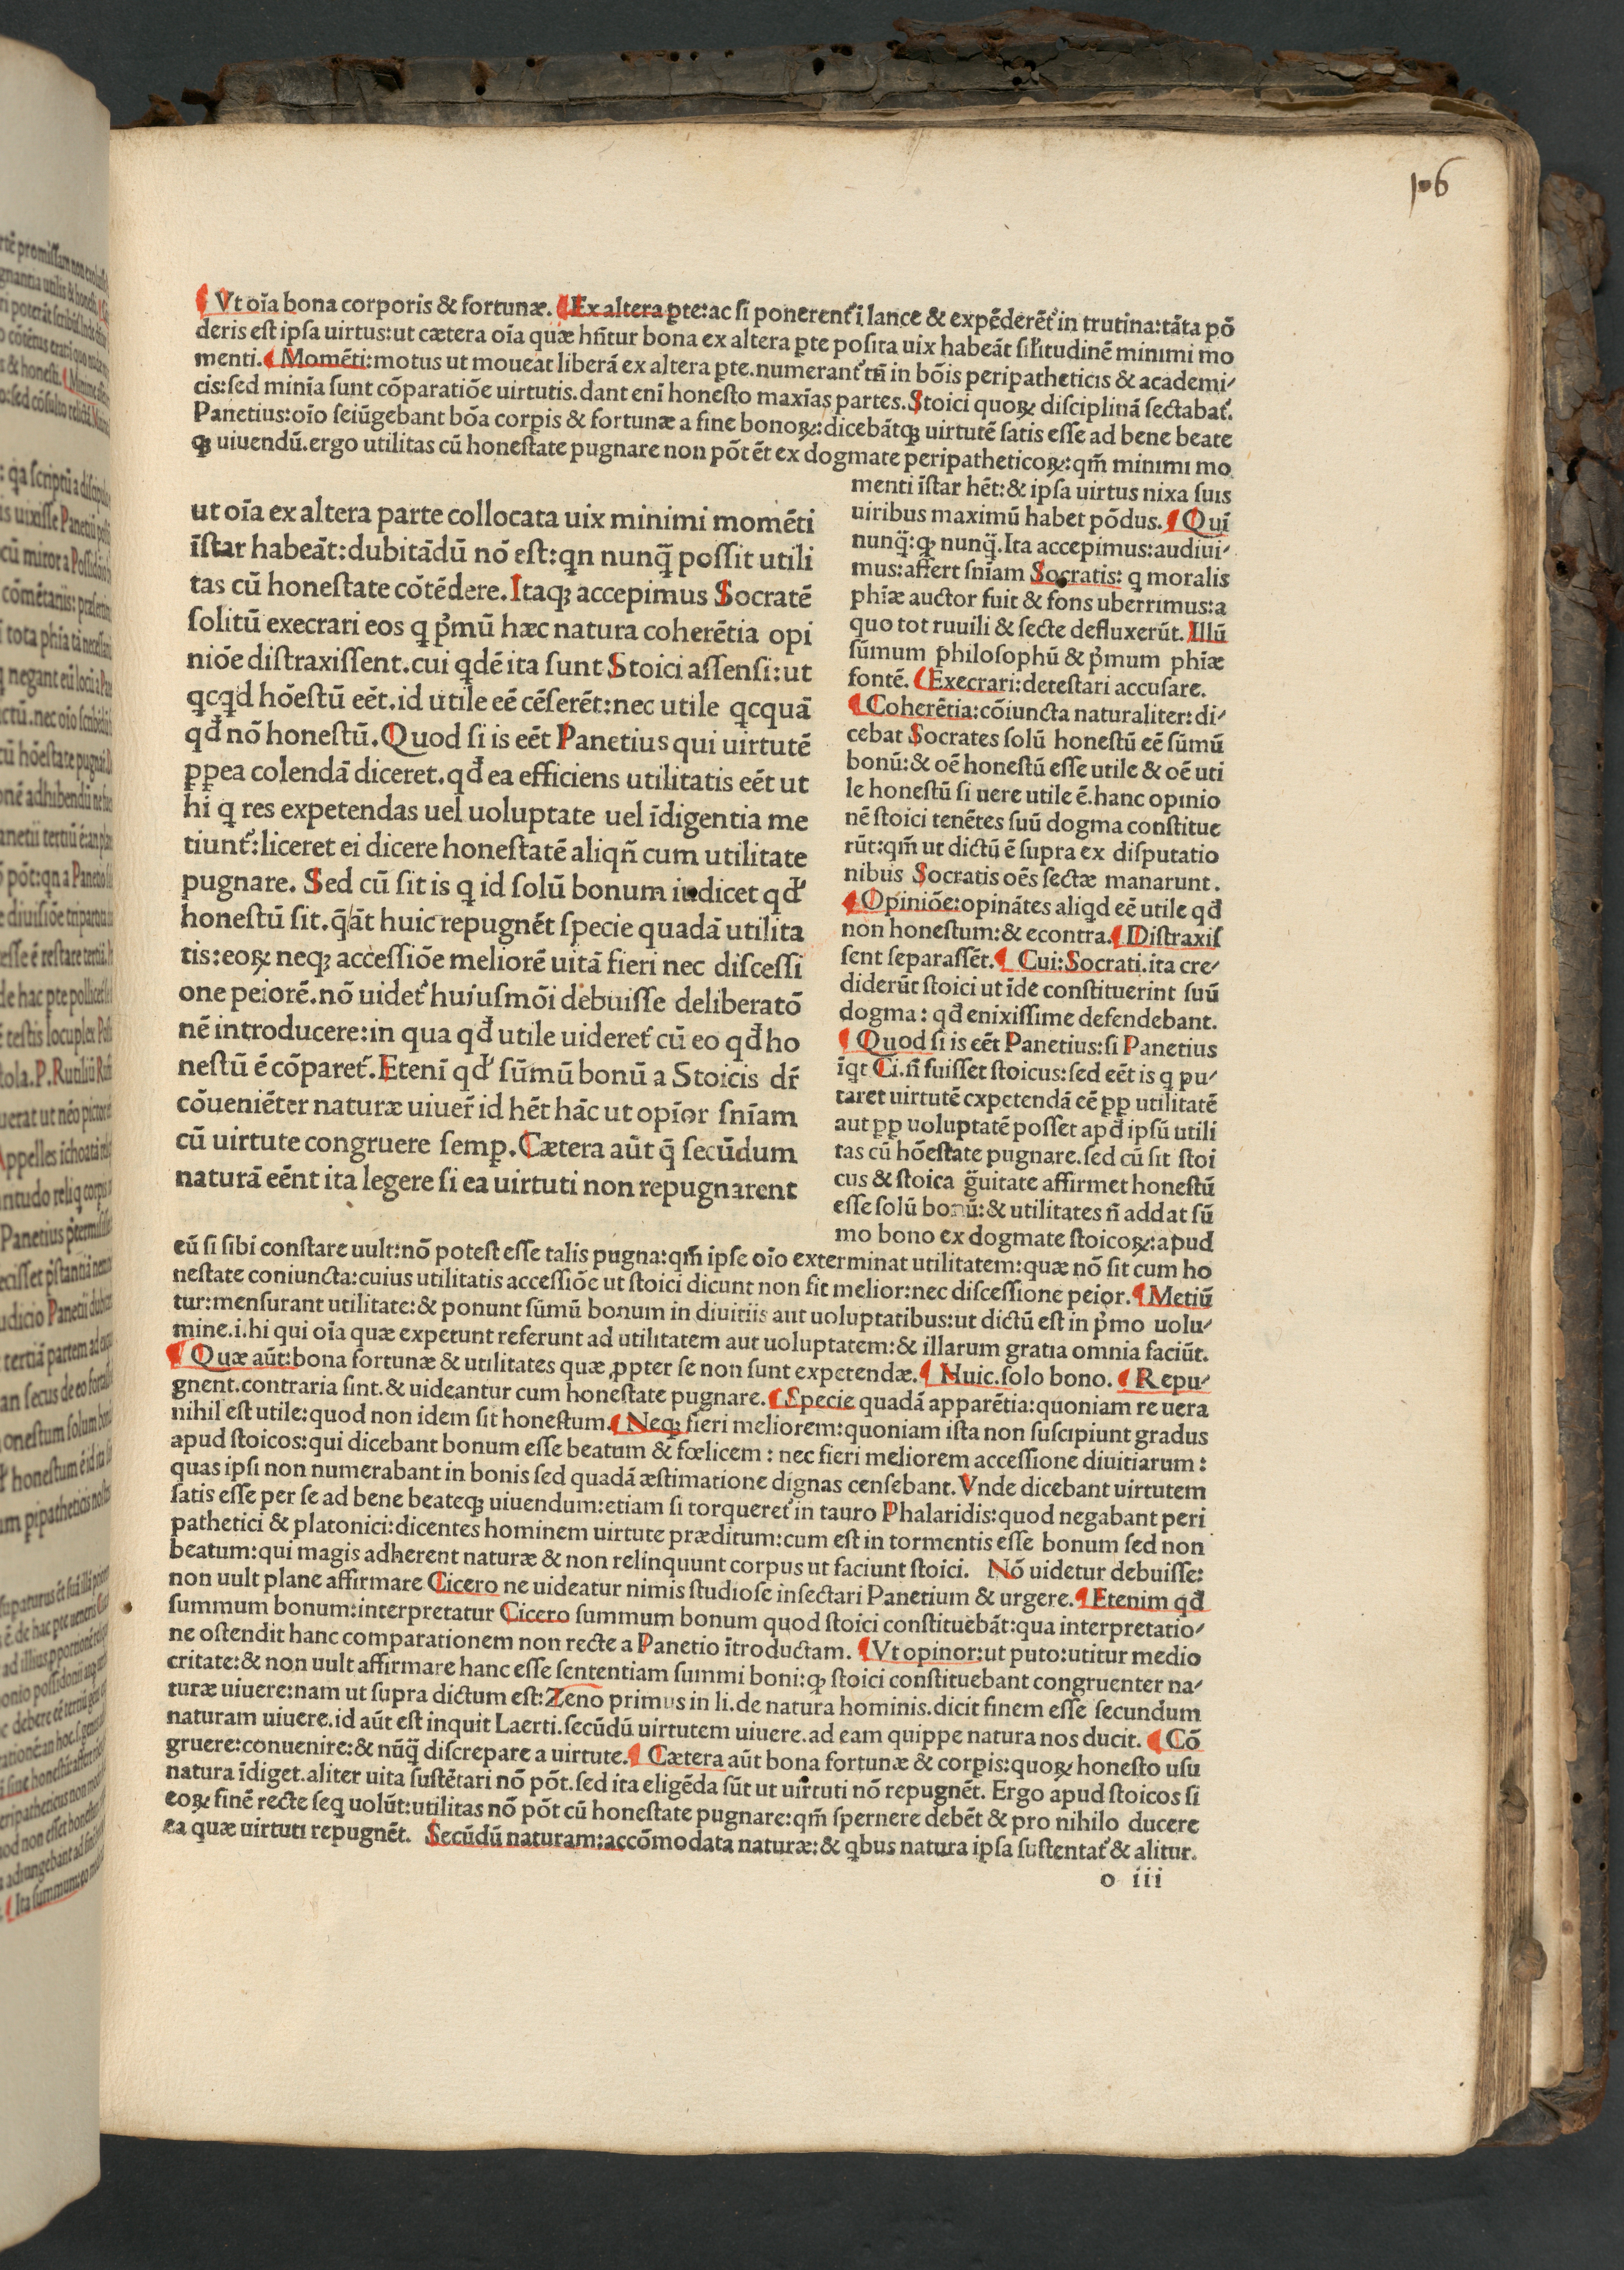 106
¶ Vt oīa bona corporis & fortunæ. ¶ Ex altera ꝑte: ac ſi ponerent᷑ ī lance & expēderēt᷑ in trutina: tāta pō
deris eſt ipſa uirtus: ut cætera oīa quæ hn̄tur bona ex altera ꝑte poſita uix habeāt ſil̄itudinē minimi mo
menti. ¶ Momēti: motus ut moueat liberā ex altera ꝑte. numerant᷑ tn̄ in bōis peripatheticis & academi-
cis: ſed minīa ſunt cōparatiōe uirtutis. dant enī honeſto maxīas partes. Stoici quoꝝ diſciplinā ſectabat᷑.
Panetius: oīo ſeiūgebant bōa corꝑis & fortunæ a fine bonoꝝ: dicebātqꝫ uirtutē ſatis eſſe ad bene beate
qꝫ uiuendū. ergo utilitas cū honeſtate pugnare non pōt ēt ex dogmate peripatheticoꝝ: qm̄ minimi mo
menti īſtar hēt: & ipſa uirtus nixa ſuis
uiribus maximū habet pōdus. ¶ Quī
nunq̄: ꝙ nunq̄. Ita accepimus: audiui-
mus: affert ſnīam Socratis: q moralis
phīæ auctor fuit & fons uberrimus: a
quo tot ruuili & ſecte defluxerūt. Illū
ſūmum philoſophū & p̄mum phīæ
fontē. ¶ Execrari: deteſtari accuſare.
¶ Coherētia: cōiuncta naturaliter: di-
cebat Socrates ſolū honeſtū eē ſūmū
bonū: & oē honeſtū eſſe utile & oē uti
le honeſtū ſi uere utile ē. hanc opinio
nē ſtoici tenētes ſuū dogma conſtitue
rūt: qm̄ ut dictū ē ſupra ex diſputatio
nibus Socratis oēs ſectæ manarunt.
¶ Opiniōe: opinātes aliqd eē utile qđ
non honeſtum: & econtra. ¶ Diſtraxiſ
ſent ſeparaſſēt. ¶ Cui: Socrati. ita cre-
diderūt ſtoici ut īde conſtituerint ſuū
dogma: qđ enixiſſime defendebant.
¶ Quod ſi is eēt Panetius: ſi Panetius
īqt Ci. n̄ fuiſſet ſtoicus: ſed eēt is q pu-
taret uirtutē expetendā eē ꝓꝑ utilitatē
aut ꝓꝑ uoluptatē poſſet apđ ipſū utili
tas cū hōeſtate pugnare. ſed cū ſit ſtoi
cus & ſtoica g̃uitate affirmet honeſtū
eſſe ſolū bonū: & utilitates n̄ addat ſū
mo bono ex dogmate ſtoicoꝝ: apud
ut oīa ex altera parte collocata uix minimi momēti
īſtar habeāt: dubitādū nō eſt: qn nunq̄ poſſit utili
tas cū honeſtate cōtēdere. Itaqꝫ accepimus Socratē
ſolitū execrari eos q p̄mū hæc natura coherētia opi
niōe diſtraxiſſent. cui qdē ita ſunt Stoici aſſenſi: ut
qcqd hōeſtū eēt. id utile eē cēſerēt: nec utile qcquā
qđ nō honeſtū. Quod ſi is eēt Panetius qui uirtutē
ꝓꝑea colendā diceret. qđ ea efficiens utilitatis eēt ut
hi q res expetendas uel uoluptate uel īdigentia me
tiunt᷑: liceret ei dicere honeſtatē aliqn̄ cum utilitate
pugnare. Sed cū ſit is q id ſolū bonum iudicet qđ
honeſtū ſit. q̄ āt huic repugnēt ſpecie quadā utilita
tis: eoꝝ neqꝫ acceſſiōe meliorē uitā fieri nec diſceſſi
one peiorē. nō uidet᷑ huiuſmōi debuiſſe deliberatō
nē introducere: in qua qđ utile uideret᷑ cū eo qđ ho
neſtū ē cōparet᷑. Etenī qđ ſūmū bonū a Stoicis dr̄
cōueniēter naturæ uiuer̄ id hēt hāc ut opīor ſnīam
cū uirtute congruere ſemꝑ. Cætera aūt q̄ ſecūdum
naturā eēnt ita legere ſi ea uirtuti non repugnarent
eū ſi ſibi conſtare uult: nō poteſt eſſe talis pugna: qm̄ ipſe oīo exterminat utilitatem: quæ nō ſit cum ho
neſtate coniuncta: cuius utilitatis acceſſiōe ut ſtoici dicunt non fit melior: nec diſceſſione peior. ¶ Metiū
tur: menſurant utilitate: & ponunt ſūmū bonum in diuitiis aut uoluptatibus: ut dictū eſt in p̄mo uolu-
mine. i. hi qui oīa quæ expetunt referunt ad utilitatem aut uoluptatem: & illarum gratia omnia faciūt.
¶ Quæ aūt: bona fortunæ & utilitates quæ ꝓpter ſe non ſunt expetendæ. ¶ Huic. ſolo bono. ¶ Repu-
gnent. contraria ſint. & uideantur cum honeſtate pugnare. ¶ Specie quadā apparētia: quoniam re uera
nihil eſt utile: quod non idem ſit honeſtum. ¶ Neqꝫ fieri meliorem: quoniam iſta non ſuſcipiunt gradus
apud ſtoicos: qui dicebant bonum eſſe beatum & fœlicem: nec fieri meliorem acceſſione diuitiarum:
quas ipſi non numerabant in bonis ſed quadā æſtimatione dignas cenſebant. Vnde dicebant uirtutem
ſatis eſſe per ſe ad bene beateqꝫ uiuendum: etiam ſi torqueret᷑ in tauro Phalaridis: quod negabant peri
pathetici & platonici: dicentes hominem uirtute præditum: cum eſt in tormentis eſſe bonum ſed non
beatum: qui magis adherent naturæ & non relinquunt corpus ut faciunt ſtoici. Nō uidetur debuiſſe:
non uult plane affirmare Cicero ne uideatur nimis ſtudioſe inſectari Panetium & urgere. ¶ Etenim qđ
ſummum bonum: interpretatur Cicero ſummum bonum quod ſtoici conſtituebāt: qua interpretatio-
ne oſtendit hanc comparationem non recte a Panetio ītroductam. ¶ Vt opinor: ut puto: utitur medio
critate: & non uult affirmare hanc eſſe ſententiam ſummi boni: ꝙ ſtoici conſtituebant congruenter na-
turæ uiuere: nam ut ſupra dictum eſt: Zeno primus in li. de natura hominis. dicit finem eſſe ſecundum
naturam uiuere. id aūt eſt inquit Laerti. ſecūdū uirtutem uiuere. ad eam quippe natura nos ducit. ¶ Cō
gruere: conuenire: & nūq̄ diſcrepare a uirtute. ¶ Cætera aūt bona fortunæ & corꝑis: quoꝝ honeſto uſu
natura īdiget. aliter uita ſuſtētari nō pōt. ſed ita eligēda ſūt ut uirtuti nō repugnēt. Ergo apud ſtoicos ſi
eoꝝ finē recte ſeq uolūt: utilitas nō pōt cū honeſtate pugnare: qm̄ ſpernere debēt & pro nihilo ducere
ea quæ uirtuti repugnēt. Secūdū naturam: accōmodata naturæ: & qbus natura ipſa ſuſtentat᷑ & alitur.
o iii